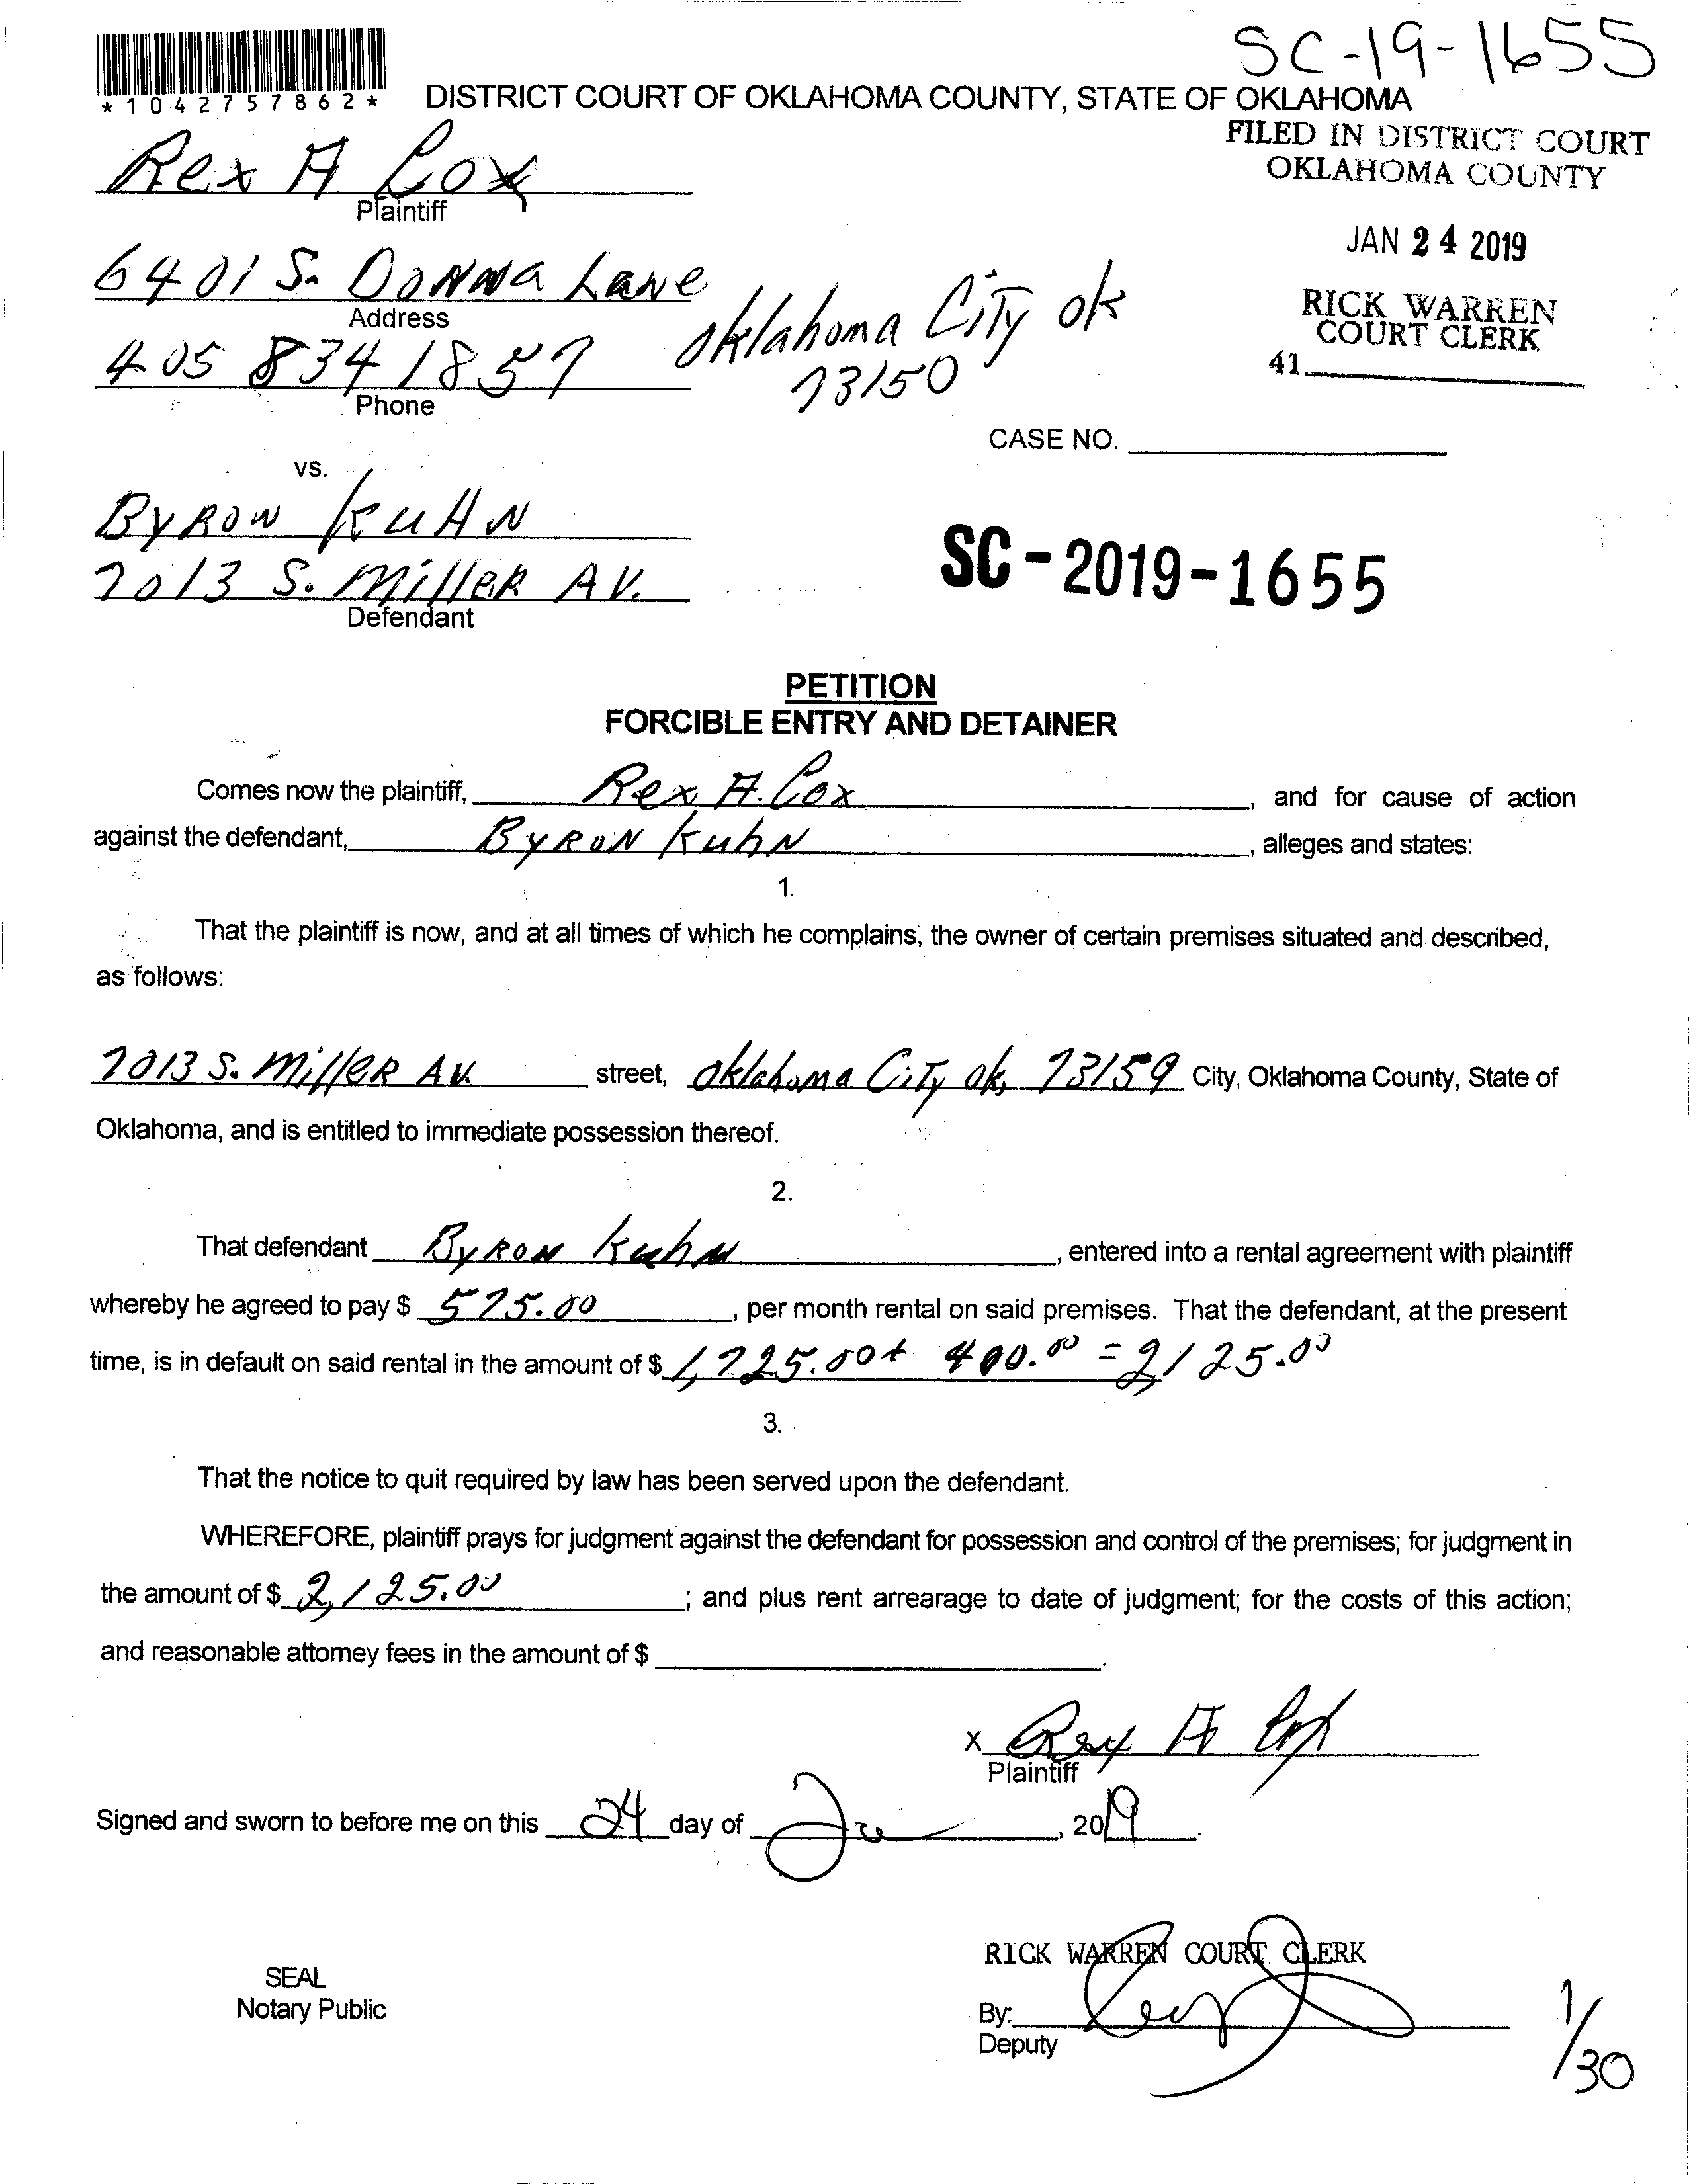 SC-19-1655
*1042757862*
DISTRICT COURT OF OKLAHOMA COUNTY, STATE OF OKLAHOMA
FILED IN DISTRICT COURT
OKLAHOMA COUNTY
Rex A Cox
Plaintiff
JAN 24 2019
6401 S. Donna Lane
Address
Oklahoma City ok
73150
RICK WARREN
COURT CLERK
41
405 834 1857
Phone
CASE NO.
vs.
Byron Kuhn
7013 S. Miller Av.
Defendant
SC-2019-1655
PETITION
FORCIBLE ENTRY AND DETAINER
Comes now the plaintiff, Rex A. Cox, and for cause of action
against the defendant, Byron Kuhn, alleges and states:
1.
That the plaintiff is now, and at all times of which he complains, the owner of certain premises situated and described,
as follows:
7013 S. Miller Av. street, Oklahoma City ok, 73159 City, Oklahoma County, State of
Oklahoma, and is entitled to immediate possession thereof.
2.
That defendant Byron Kuhn, entered into a rental agreement with plaintiff
whereby he agreed to pay $ 575.00, per month rental on said premises. That the defendant, at the present
time, is in default on said rental in the amount of $ 1,725.00 + 400.00 = 2,125.00
3.
That the notice to quit required by law has been served upon the defendant.
WHEREFORE, plaintiff prays for judgment against the defendant for possession and control of the premises; for judgment in
the amount of $ 2,125.00; and plus rent arrearage to date of judgment; for the costs of this action;
and reasonable attorney fees in the amount of $ .
X Rex A Cox
Plaintiff
Signed and sworn to before me on this 24 day of , 2019.
RICK WARREN COURT CLERK
SEAL
Notary Public
By:
Deputy
1/30